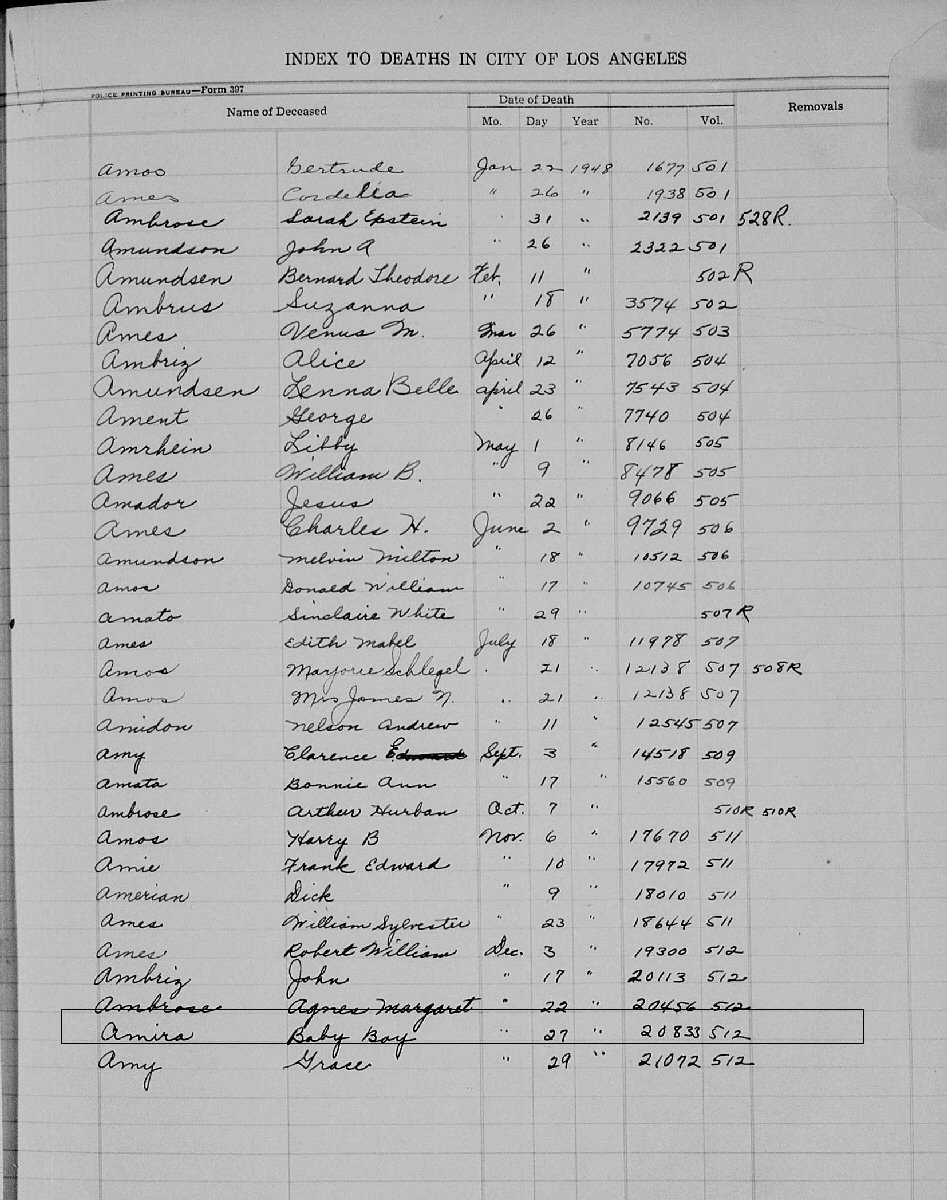 INDEX TO DEATHS IN CITY OF LOS ANGELES
POLICE PRINTING BUREAU—Form 397
Name of Deceased Date of Death Removals
Mo. Day Year No. Vol.
Amos Gertrude Jan 22 1948 1677 501
Ames Cordelia " 26 " 1938 501
Ambrose Sarah Epstein " 31 " 2139 501 528R.
Amundson John A " 26 " 2322 501
Amundsen Bernard Theodore Feb. 11 " 502 R
Ambrus Suzanna " 18 " 3574 502
Ames Venus M. Mar 26 " 5774 503
Ambriz Alice April 12 " 7056 504
Amundsen Lenna Belle April 23 " 7543 504
Ament George " 26 " 7740 504
Amrhein Libby May 1 " 8146 505
Ames William B. " 9 " 8478 505
Amador Jesus " 22 " 9066 505
Ames Charles H. June 2 " 9729 506
Amundson Melvin Milton " 18 " 10512 506
Amos Donald William " 17 " 10745 506
Amato Sinclaire White " 29 " 507 R
Ames Edith Mabel July 18 " 11978 507
Amos Marjorie Schlegel " 21 " 12138 507 508R
Amos Mrs James N. " 21 " 12138 507
Amidon Nelson Andrew " 11 " 12545 507
Amy Clarence Edward Sept. 3 " 14518 509
Amata Bonnie Ann " 17 " 15560 509
Ambrose Arthur Hurban Oct. 7 " 510R 510R
Amos Harry B Nov. 6 " 17670 511
Amie Frank Edward " 10 " 17972 511
Amerian Dick " 9 " 18010 511
Ames William Sylvester " 23 " 18644 511
Ames Robert William Dec. 3 " 19300 512
Ambriz John " 17 " 20113 512
Ambrose Agnes Margaret " 22 " 20456 512
Amira Baby Boy " 27 " 20833 512
Amy Grace " 29 " 21072 512